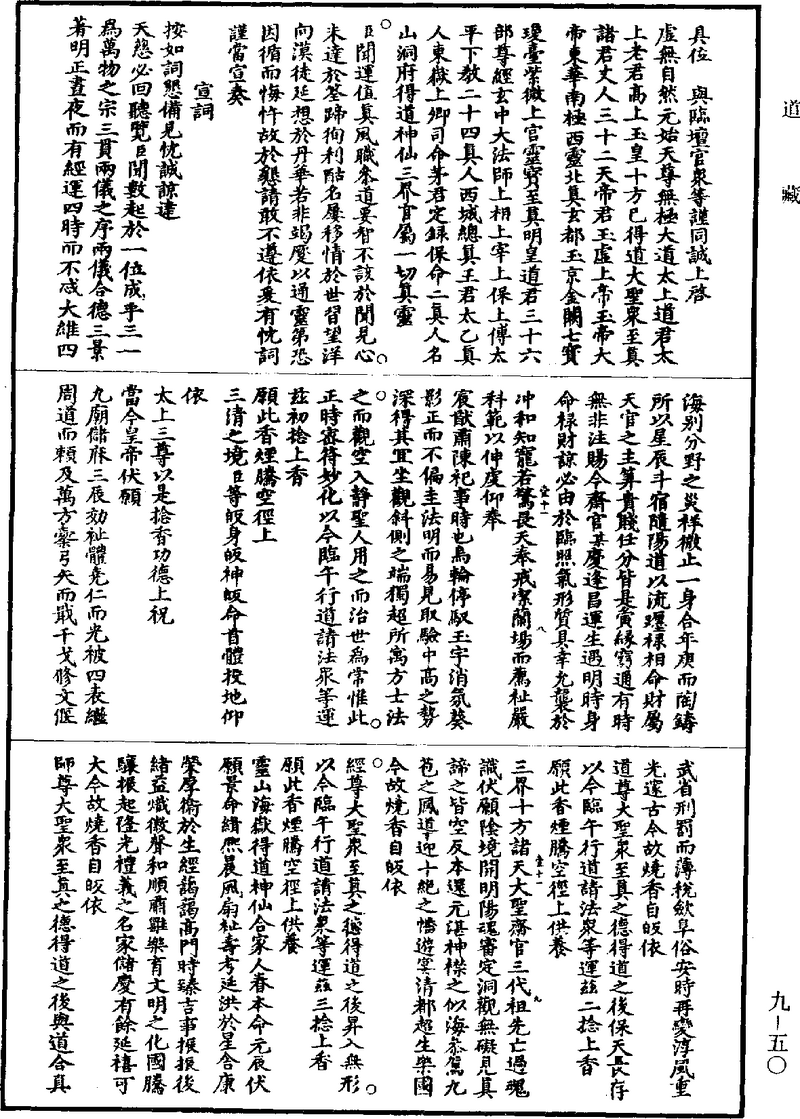 道藏
具位　與臨壇官衆等謹同誠上啓
虛無自然元始天尊無極大道太上道君太
上老君高上玉皇十方已得道大聖衆至真
諸君丈人三十二天帝君玉虛上帝玉帝大
帝東華南極西靈北真玄都玉京金闕七寶
瓊臺紫微上宮靈寶至真明皇道君三十六
部尊經玄中大法師上相上宰上保上傅太
平下教二十四真人西城總真王君太乙真
人東嶽上卿司命茅君定錄保命二真人名
山洞府得道神仙三界官屬一切真靈
臣聞運值真風職參道要智不該於聞見心
未達於筌蹄徇利酷名屢移情於世習望洋
向漠徒延想於丹華若非竭慶以通靈第恐
因循而悔忤故於懇請敢不遵依爰有忱詞
謹當宣奏
宣詞
按如詞懇備見忱誠諒達
天慈必回聽覽臣聞數起於一位成乎三一
爲萬物之宗三貫兩儀之序兩儀合德三景
著明正晝夜而有經運四時而不忒大維四
海別分野之災祥微止一身合年庚而陶鑄
所以星辰斗宿隨陽道以流躔祿相命財屬
天官之主算貴賤任分皆是夤緣窮通有時
無非注賜今齋官某慶逢昌運生遇明時身
命祿財諒必由於臨照氣形質具幸允襲於
冲和知寵若驚畏天奉戒潔蘭場而薦祉嚴
科範以伸虔仰奉
宸猷肅陳祀事時也烏輪停馭玉宇消氛葵
影正而不偏圭法明而易見取驗中高之勢
深得其宜坐觀斜側之端獨超所寓方士法
之而觀空入靜聖人用之而治世爲常惟此
正時審符妙化以今臨午行道請法衆等運
兹初捻上香
願此香煙騰空徑上
三清之境臣等皈身皈神皈命首體投地仰
依
太上三尊以是捻香功德上祝
當今皇帝伏願
九廟儲庥三辰效祉體堯仁而光被四表繼
周道而賴及萬方櫜弓矢而戢干戈修文偃
武省刑罰而薄稅斂阜俗安時再變淳風重
光邃古今故燒香自皈依
道尊大聖衆至真之德得道之後保天長存
以今臨午行道請法衆等運兹二捻上香
願此香煙騰空徑上供養
三界十方諸天大聖齋官三代祖先亡過魂
識伏願陰境開明陽魂審定洞觀無礙見真
諦之皆空反本還元湛神襟之似海恭駕九
苞之鳳道迎十絕之幡遊宴清都超生樂國
今故燒香自皈依
經尊大聖衆至真之德得道之後昇入無形
以今臨午行道請法衆等運兹三捻上香
願此香煙騰空徑上供養
靈山海嶽得道神仙合家人眷本命元辰伏
願景命緝熙晨風扇祉壽考延洪於星舍康
榮厚衛於生經藹藹高門時臻吉事振振後
緒益熾微聲和順肅雝樂育文明之化國騰
驤根起隆光禮義之名家儲慶有餘延禧可
大今故燒香自皈依
師尊大聖衆至真之德得道之後與道合真
九—五〇